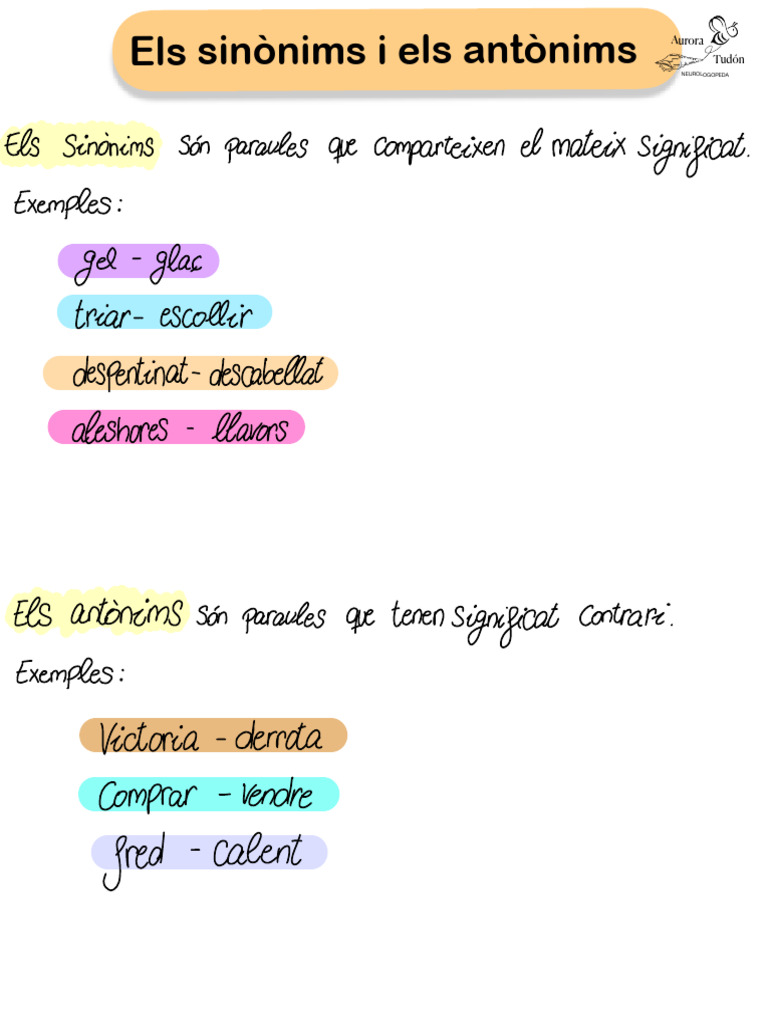 Els sinònims i els antònims
Aurora
Tudón
NEUROLOGOPEDA
Els Sinònims són paraules que comparteixen el mateix significat.
Exemples:
gel - glaç
triar - escollir
despentinat - descabellat
aleshores - llavors
Els antònims són paraules que tenen significat contrari.
Exemples:
Victoria - derrota
Comprar - vendre
fred - calent